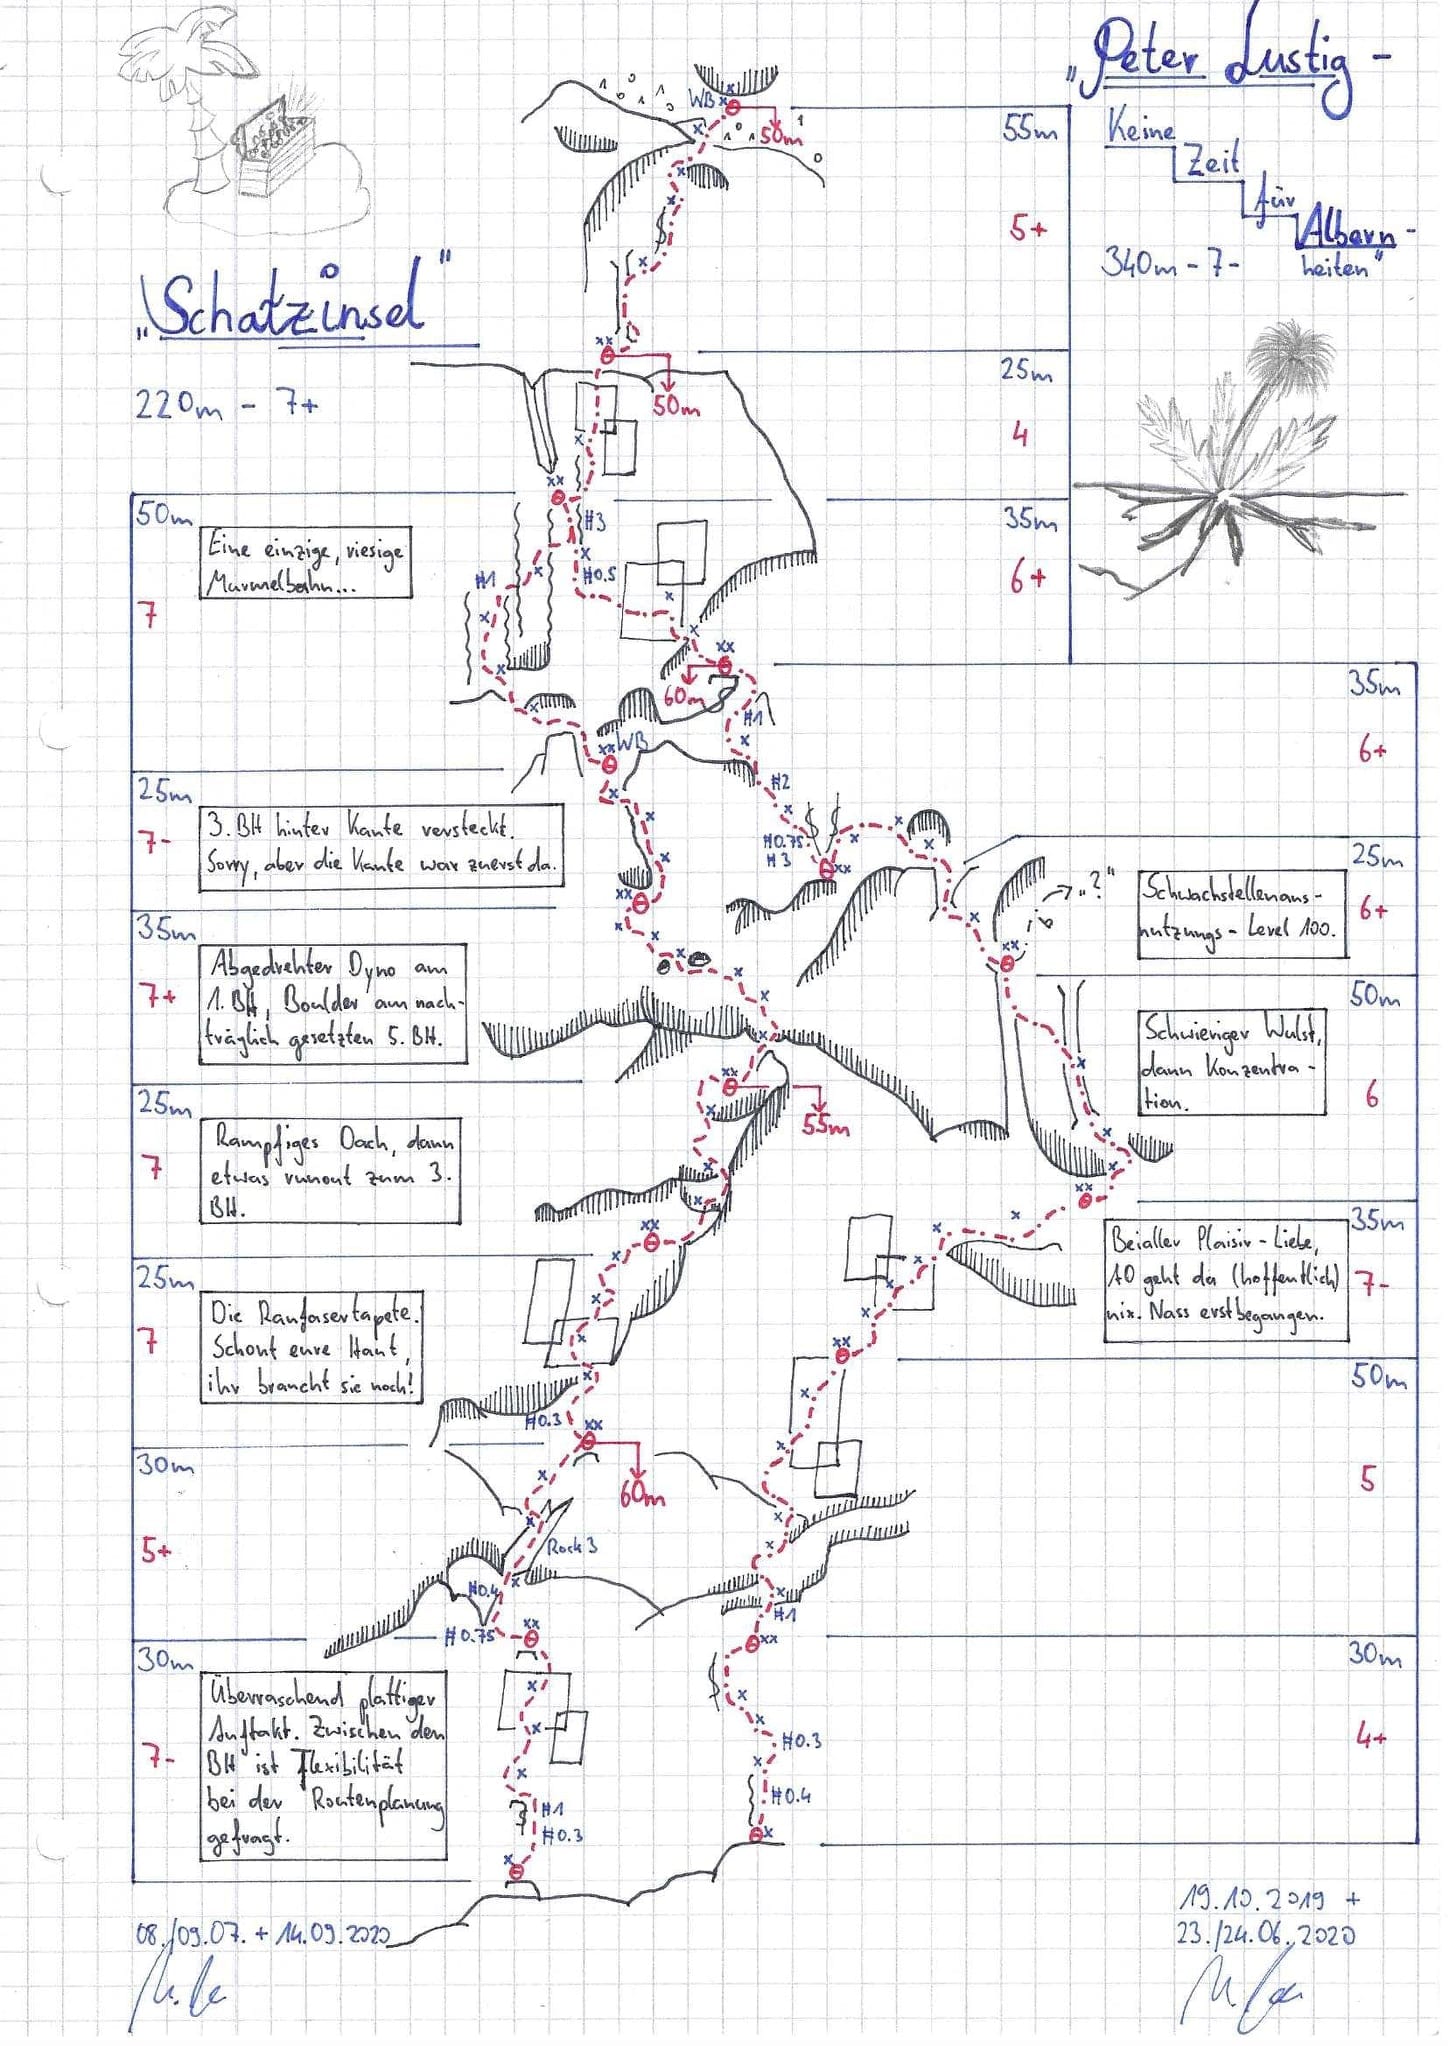 „Peter Lustig -
Keine
Zeit
für
Albern-
heiten"
340m - 7-
„Schatzinsel"
220m - 7+
WB
50m
55m
5+
50m
25m
4
#3
#0.5
#1
35m
6+
60m
50m
7
Eine einzige, riesige
Murmelbahn...
WB
#1
#2
#0.75
#3
35m
6+
25m
7-
3. BH hinter Kante versteckt.
Sorry, aber die Kante war zuerst da.
„?"
25m
6+
Schwachstellenaus-
nutzungs - Level 100.
35m
7+
Abgedrehter Dyno am
1. BH, Boulder am nach-
träglich gesetzten 5. BH.
50m
6
Schwieriger Wulst,
dann Konzentra-
tion.
55m
25m
7
Rampfiges Dach, dann
etwas runout zum 3.
BH.
35m
7-
Bei aller Plaisir-Liebe,
A0 geht da (hoffentlich)
nix. Nass erstbegangen.
25m
7
Die Raufasertapete.
Schont eure Haut,
ihr braucht sie noch!
#0.3
60m
50m
5
30m
5+
Rock 3
#0.4
#0.75
#1
30m
7-
Überraschend plattiger
Auftakt. Zwischen den
BH ist Flexibilität
bei der Routenplanung
gefragt.
#1
#0.3
#0.3
#0.4
30m
4+
08./09.07. + 14.09.2020
19.10.2019 +
23./24.06.2020